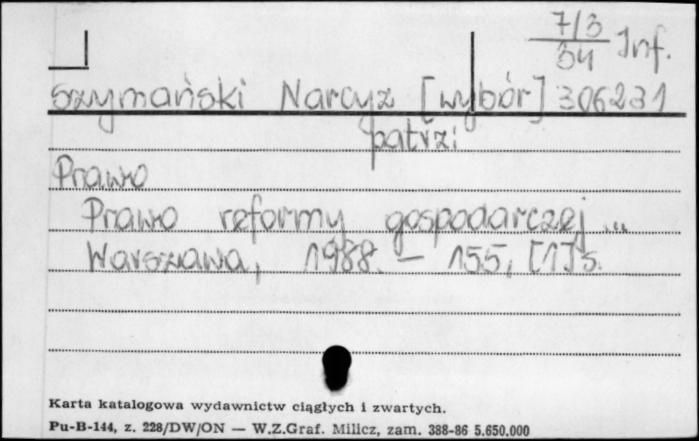 7/3
34 Inf.
Szymański Narcyz [wybór] 306231
patrz:
Prawo
Prawo reformy gospodarczej ...
Warszawa, 1988. – 155, [1] s.
Karta katalogowa wydawnictw ciągłych i zwartych.
Pu-B-144, z. 228/DW/ON — W.Z.Graf. Milicz, zam. 388-86 5.650.000